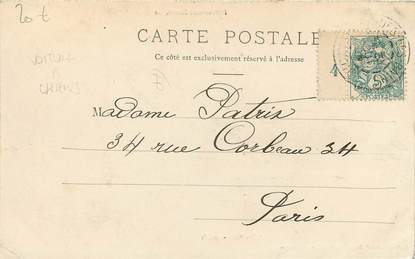 20 €
VOITURE
A
CHIENS
CARTE POSTALE
Ce côté est exclusivement réservé à l'adresse
Madame Patris
34 rue Corbeau 34
Paris